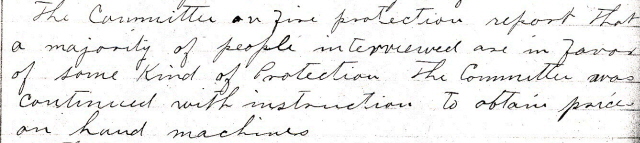 The Committee on fire protection report that
a majority of people interviewed are in favor
of some Kind of Protection The Committee was
continued with instruction to obtain price
on hand machines